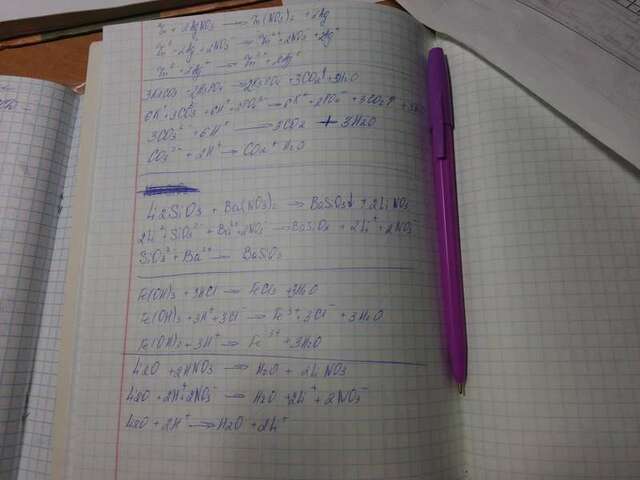 Zn + 2AgNO3 → Zn(NO3)2 + 2Ag
Zn + 2Ag + 2NO3 → Zn2+ + 2NO3 + 2Ag
Zn + 2Ag+ → Zn2+ + 2Ag
3K2CO3 + 2H3PO4 → 2K3PO4 + 3CO2↑ + 3H2O
6K+ + 3CO3 + 6H+ + 2PO4 → 6K+ + 2PO4 + 3CO2↑
3CO3 2- + 6H+ → 3CO2 + 3H2O
CO3 2- + 2H+ → CO2 + H2O
Li2SiO3 + Ba(NO3)2 → BaSiO3↓ + 2LiNO3
2Li+ + SiO3 2- + Ba2+ + 2NO3 → BaSiO3 + 2Li+ + 2NO3-
SiO3 2- + Ba2+ → BaSiO3
Fe(OH)3 + 3HCl → FeCl3 + 3H2O
Fe(OH)3 + 3H+ + 3Cl- → Fe3+ + 3Cl- + 3H2O
Fe(OH)3 + 3H+ → Fe3+ + 3H2O
Li2O + 2HNO3 → H2O + 2LiNO3
Li2O + 2H+ + 2NO3- → H2O + 2Li+ + 2NO3-
Li2O + 2H+ → H2O + 2Li+